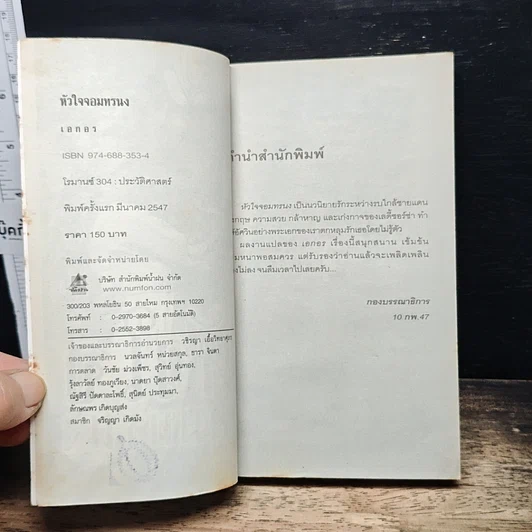 หัวใจจอมทรนง
เอกอร
ISBN 974-688-353-4
โรมานซ์ 304 : ประวัติศาสตร์
พิมพ์ครั้งแรก มีนาคม 2547
ราคา 150 บาท
พิมพ์และจัดจำหน่ายโดย
บริษัท สำนักพิมพ์น้ำฝน จำกัด
www.numfon.com
300/203 พหลโยธิน 50 สายไหม กรุงเทพฯ 10220
โทรศัพท์ : 0-2970-3684 (5 สายอัตโนมัติ)
โทรสาร : 0-2552-3898
เจ้าของและบรรณาธิการอำนวยการ วชิรญา เอื้อวิทยาศุภร
กองบรรณาธิการ นวลจันทร์ หน่วยสกุล, ธารา จินดา
การตลาด วันชัย ม่วงเพ็ชร, สุวิทย์ อุ่นทอง,
รุ้งลาวัลย์ ทองภูเวียง, นาตยา บุ๊ดสาวงศ์,
ณัฐสิริ ปัดตาละโพธิ์, สุนิตย์ ประทุมมา,
ลักษณพร เกิดบุญส่ง
สมาชิก จริญญา เกิดมัง
คำนำสำนักพิมพ์
หัวใจจอมทรนง เป็นนวนิยายรักระหว่างรบใกล้ชายแดน
อังกฤษ ความสวย กล้าหาญ และเก่งกาจของเลดี้ซอร์ช่า ทำ
ให้อัศวินอย่างพระเอกของเราตกหลุมรักเธอโดยไม่รู้ตัว
ผลงานแปลของ เอกอร เรื่องนี้สนุกสนาน เข้มข้น
หนาพอสมควร แต่รับรองว่าอ่านแล้วจะเพลิดเพลิน
ไม่ลง จนลืมเวลาไปเลยครับ...
กองบรรณาธิการ
10 กพ.47